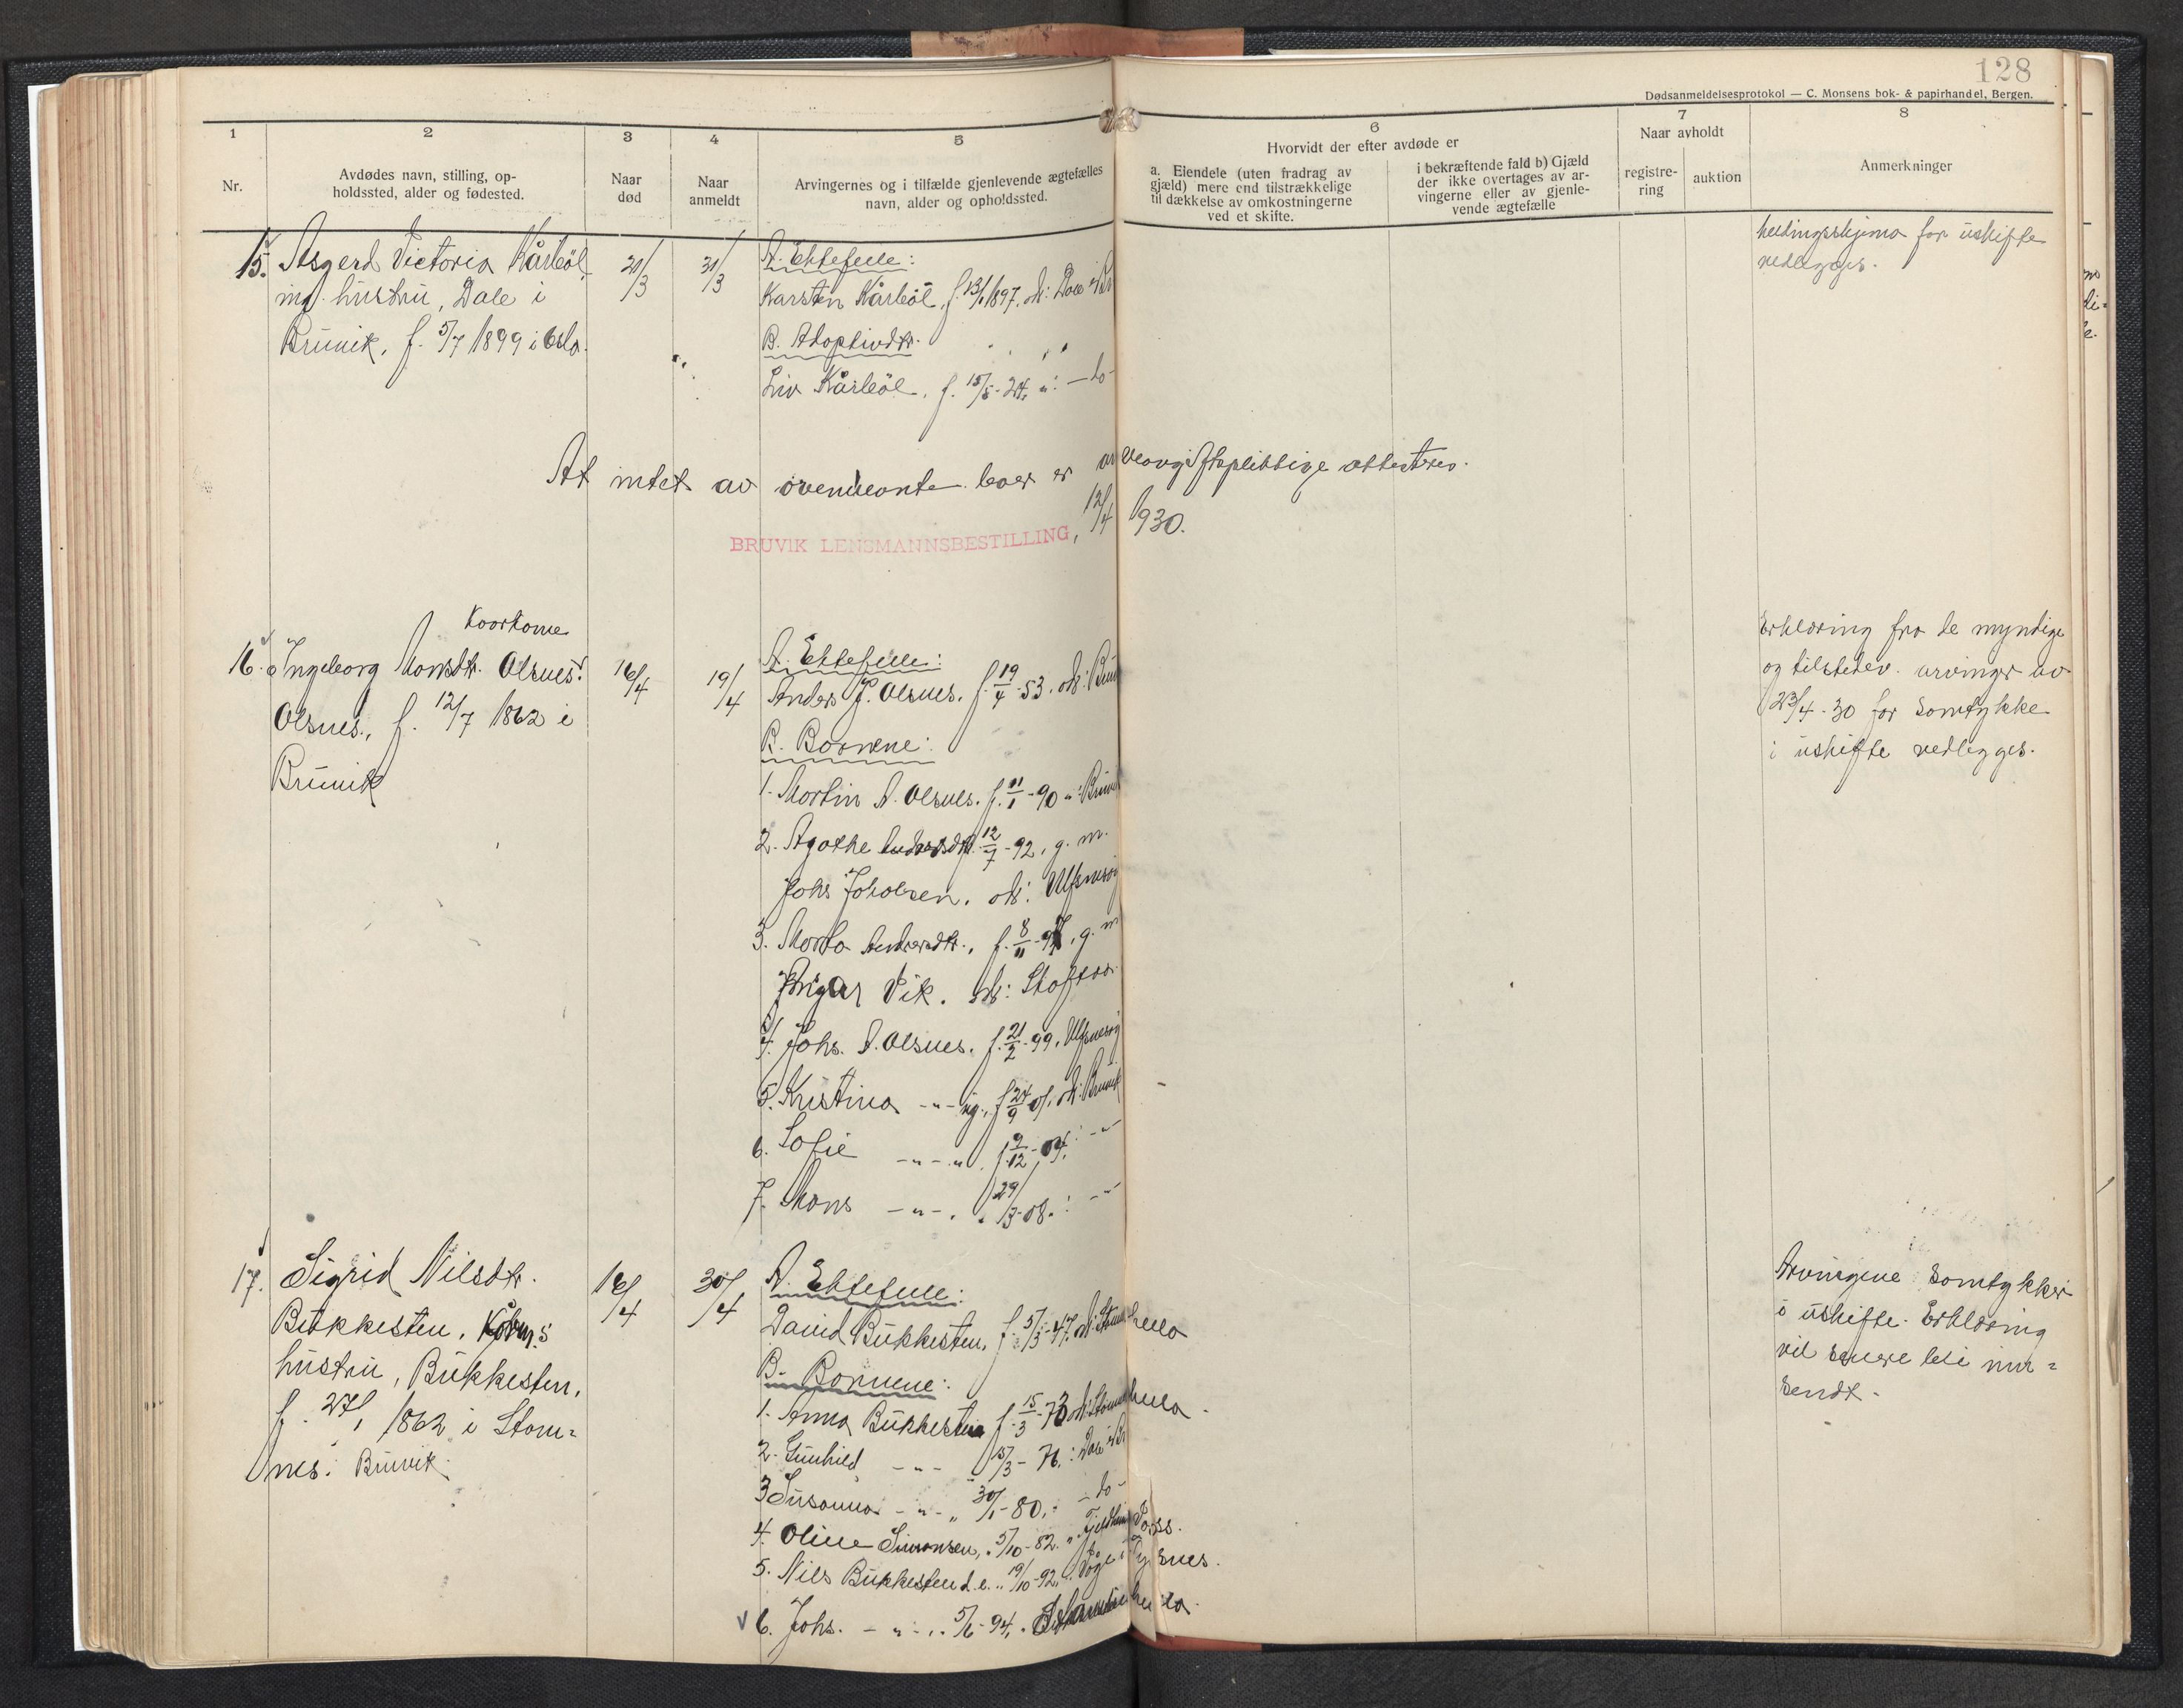 128
Dødsanmeldelsesprotokol — C. Monsens bok- & papirhandel, Bergen.
1
2
3
4
5
6
7
8
Nr.
Avdødes navn, stilling, op-
holdssted, alder og fødested.
Naar
død
Naar
anmeldt
Arvingernes og i tilfælde gjenlevende ægtefælles
navn, alder og opholdssted.
Hvorvidt der efter avdøde er
a. Eiendele (uten fradrag av
gjæld) mere end tilstrækkelige
til dækkelse av omkostningerne
ved et skifte.
i bekræftende fald b) Gjæld
der ikke overtages av ar-
vingerne eller av gjenle-
vende ægtefælle
Naar avholdt
registre-
ring
auktion
Anmerkninger
for uskifte
vedlegges.
15. Asgerd Victoria Kårbøl
hustru, Dale i
Bruvik, f. 5/7 1899 i Oslo.
31/3
A. Ektefelle:
Karsten Kårbøl, f. 13/1 1897,
B. Adoptivdtr.
Liv Kårbøl, f. 15/8-24, -do-
At intet av ovennevnte boer er arveavgiftspliktige attesteres.
BRUVIK LENSMANNSBESTILLING, 12/4 1930.
Kaarkone
16. Ingeborg Monsdtr. Olsnes.
Olsnes, f. 12/7 1862 i
Bruvik
16/4
19/4
A. Ektefelle:
Anders J. Olsnes. f. 19/4-53.
B. Bornene:
1. Martin A. Olsnes. f. 11/1-90
2. Agathe Andersdtr. 12/7-92, g. m.
Johs
3. Marta Andersdtr., f. 8/11 g. m
Vik.
4. Johs. A. Olsnes. f. 21/2-99.
5. Kristina -"- ug., f 24/9 01,
6. Sofie -"- " 9/12-04.
7. Mons -"- 29/3-08.
Erklæring fra de myndige
og tilstedev. arvinger av
23/4-30 for samtykke
i uskifte vedlegges.
17. Sigrid Nilsdtr.
Bukkesten,
hustru, Bukkesten,
f. 1862 i Stam-
nes. Bruvik.
16/4
30/4
A. Ektefelle:
David Bukkesten, f. 5/3-47,
B. Bornene:
1. Anna Bukkesten f. 15/3-73
2. Gunhild -"- 15/3-76.
3 Susanna -"- " 30/1-80. -do-
4. Oline Simonsen, 5/10-82. Voss.
5. Nils Bukkesten 19/10-92. Tysnes.
6. Johs. -"- 5/6-94.
Arvingene samtykker
i uskifte. Erklæring
vil senere bli inn-
sendt.